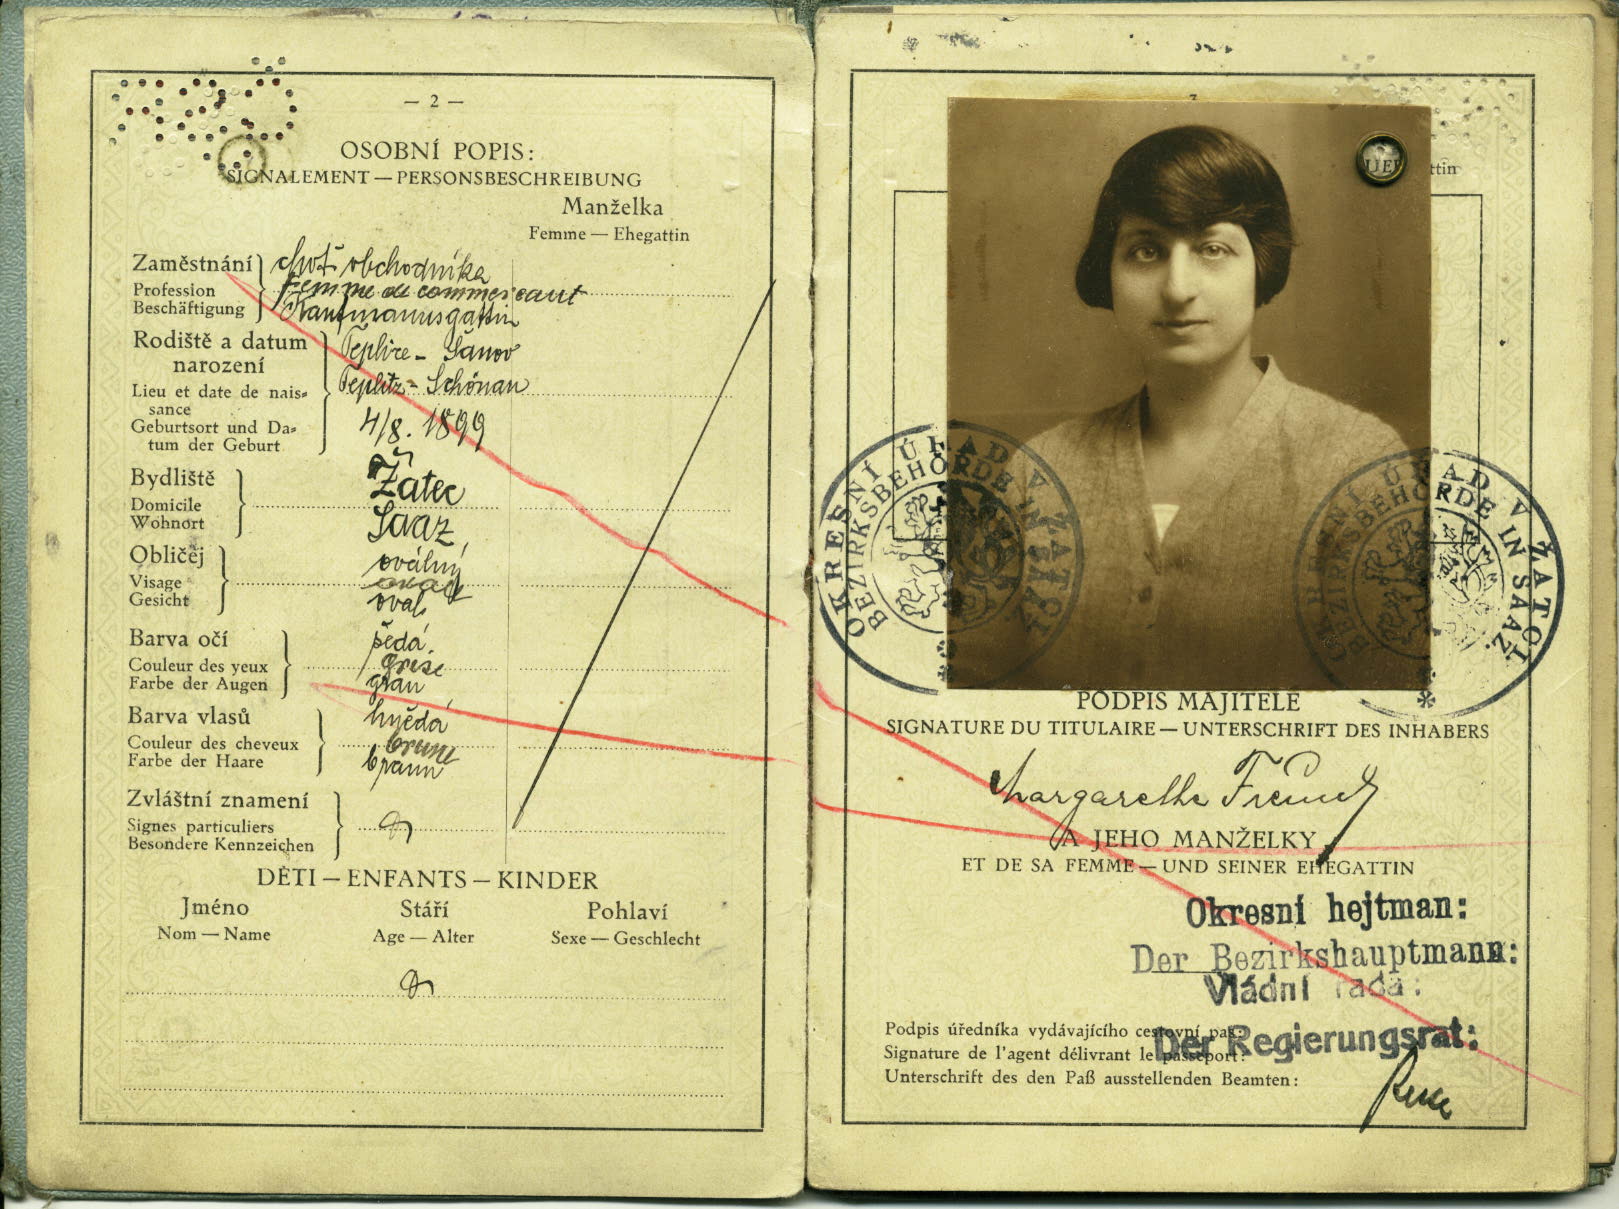 — 2 —
OSOBNÍ POPIS:
SIGNALEMENT — PERSONSBESCHREIBUNG
Manželka
Femme — Ehegattin
Zaměstnání choť obchodníka
Profession Femme de commerçant
Beschäftigung Kaufmannsgattin
Rodiště a datum Teplice - Šanov
narození
Lieu et date de nais= Teplitz - Schönau
sance
Geburtsort und Da= 4/8. 1899
tum der Geburt
Bydliště Žatec
Domicile
Wohnort Saaz
Obličej oválný
Visage
Gesicht oval
Barva očí šedá
Couleur des yeux grise
Farbe der Augen grau
Barva vlasů hnědá
Couleur des cheveux brune
Farbe der Haare braun
Zvláštní znamení
Signes particuliers
Besondere Kennzeichen
DĚTI — ENFANTS — KINDER
Jméno Stáří Pohlaví
Nom — Name Age — Alter Sexe — Geschlecht
ttin
OKRESNÍ ÚŘAD V ŽATCI
BEZIRKSBEHÖRDE IN SAAZ
OKRESNÍ ÚŘAD V ŽATCI
BEZIRKSBEHÖRDE IN SAAZ.
PODPIS MAJITELE
SIGNATURE DU TITULAIRE — UNTERSCHRIFT DES INHABERS
Margarethe Freund
A JEHO MANŽELKY
ET DE SA FEMME — UND SEINER EHEGATTIN
Okresní hejtman:
Der Bezirkshauptmann:
Vládní rada:
Podpis úředníka vydávajícího cestovní pas:
Der Regierungsrat:
Signature de l'agent délivrant le passeport:
Unterschrift des den Paß ausstellenden Beamten: